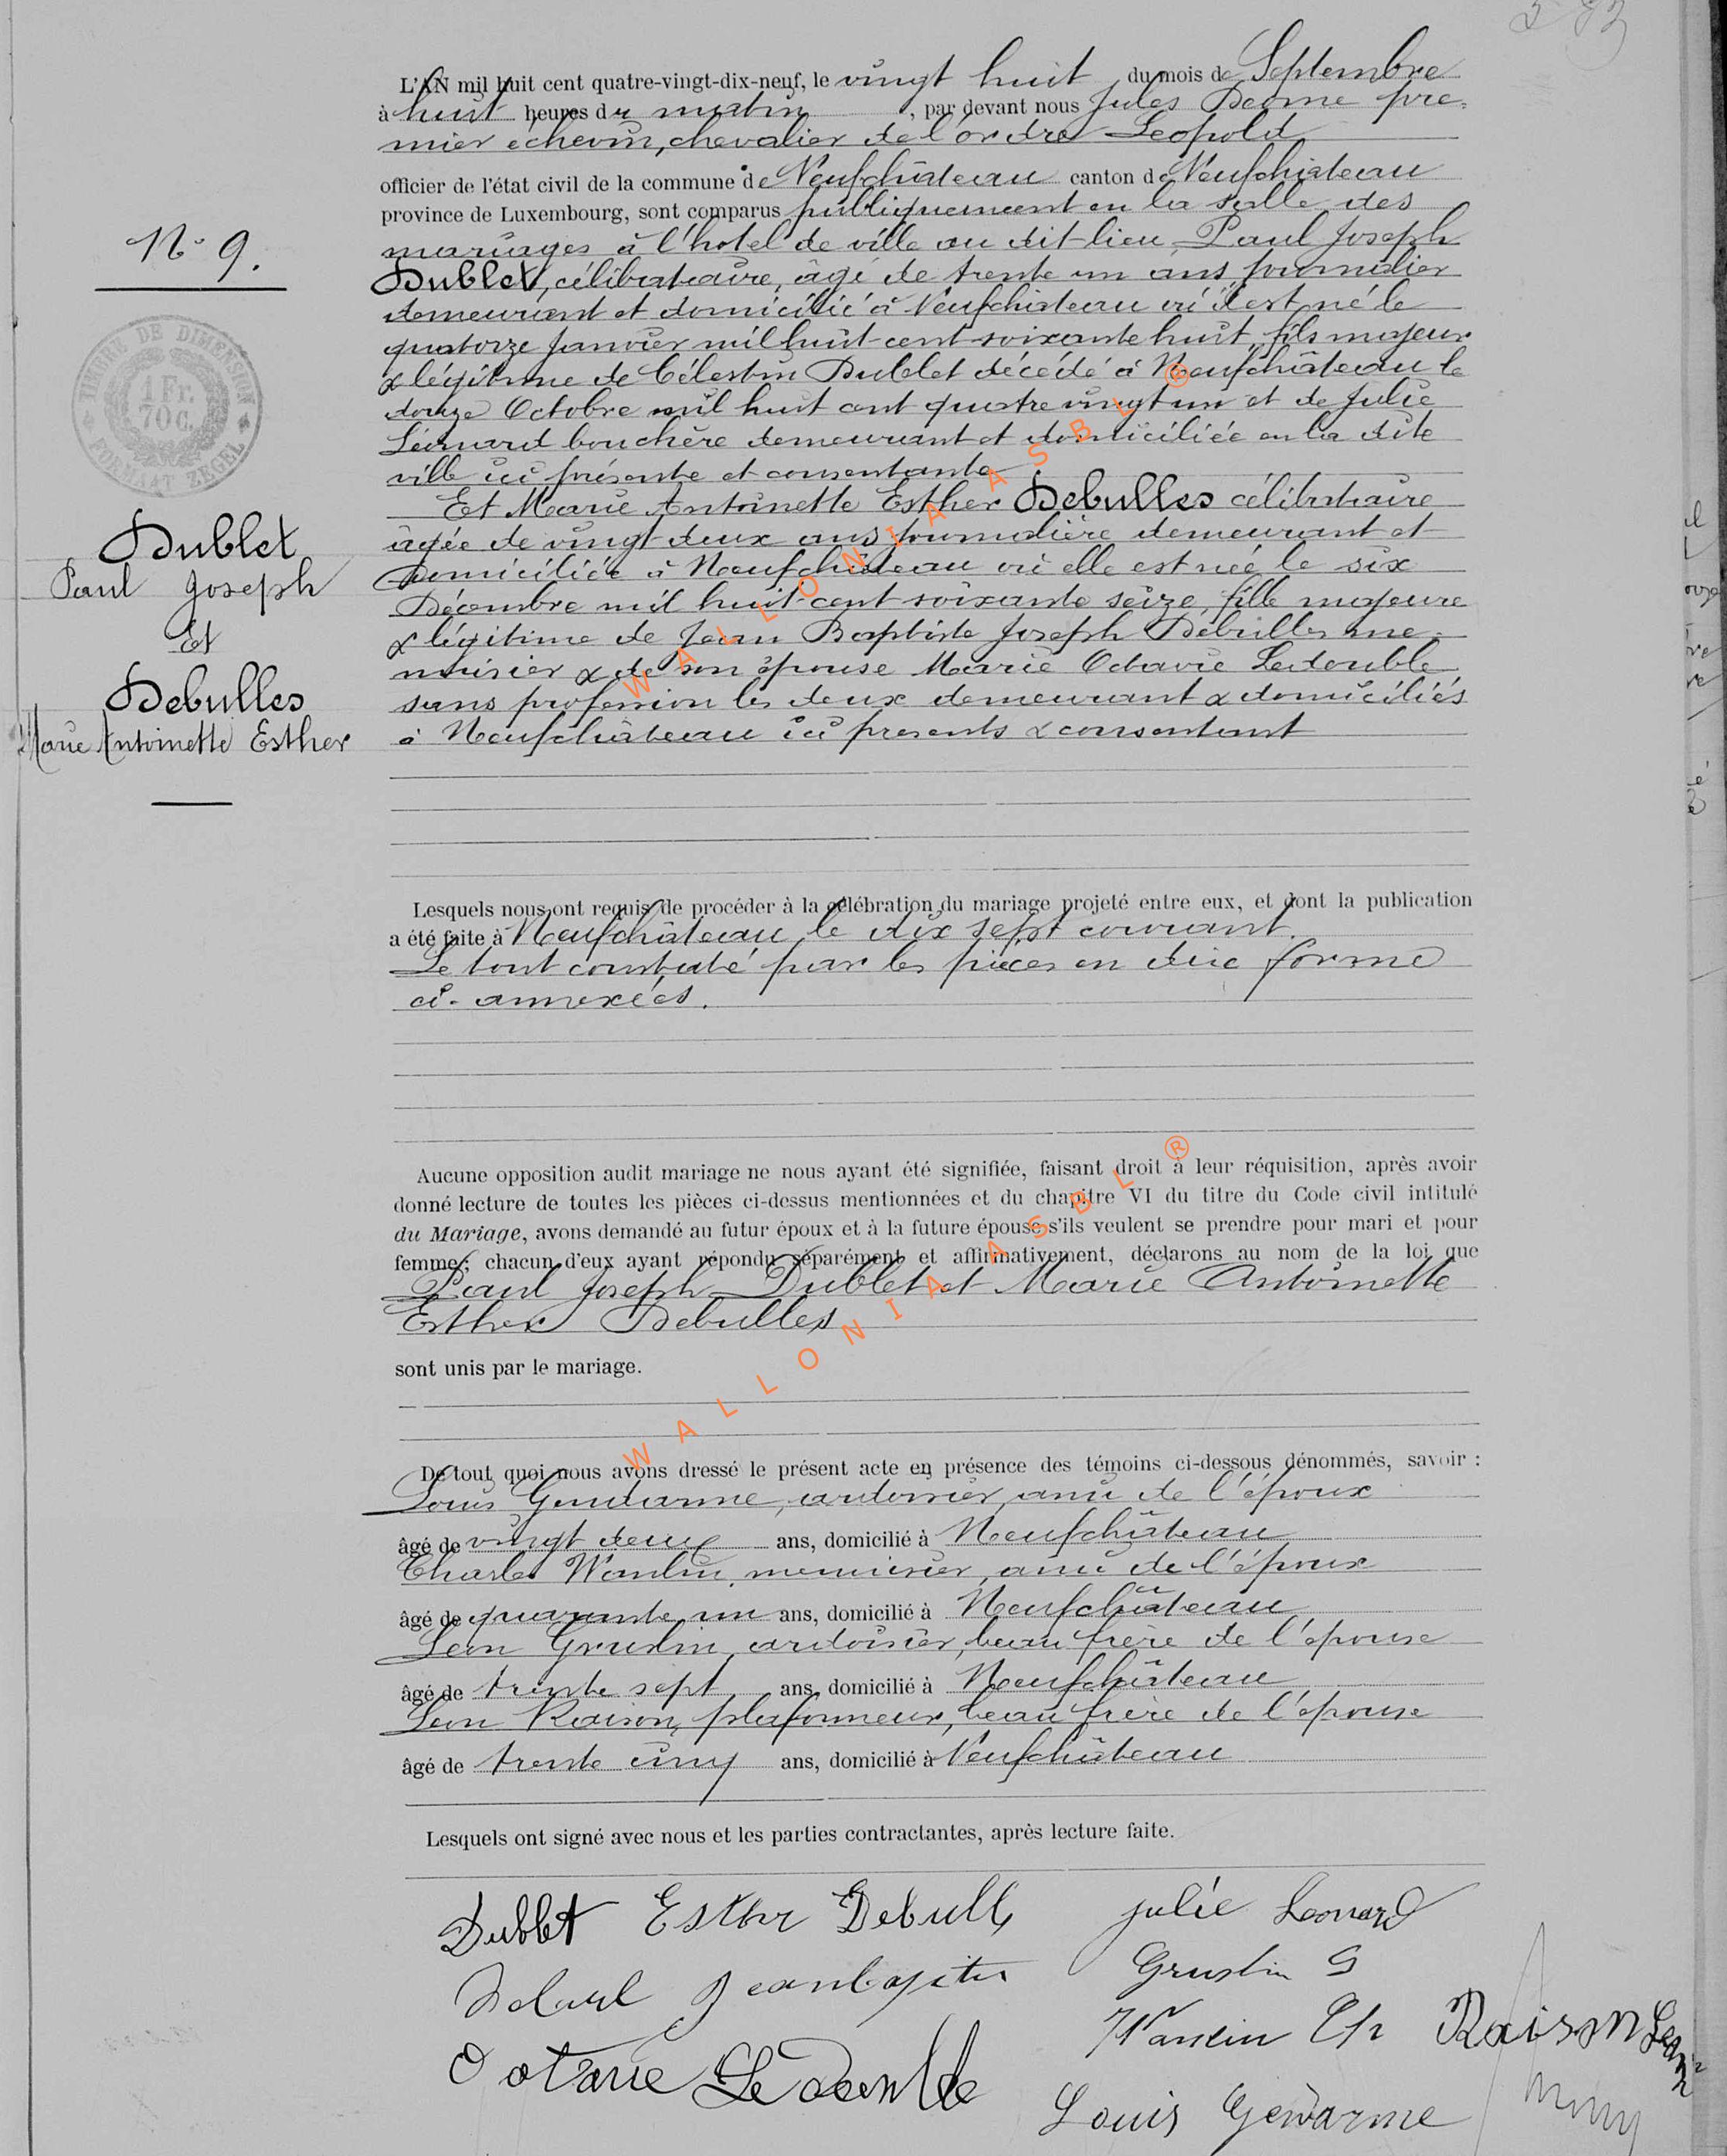 L'AN mil huit cent quatre-vingt-dix-neuf, le vingt huit du mois de Septembre
à huit heures du matin, par devant nous Jules pre-
mier échevin, chevalier de l'ordre Leopold
officier de l'état civil de la commune de Neufchâteau canton de Neufchâteau
province de Luxembourg, sont comparus publiquement en la salle des
mariages à l'hotel de ville au dit-lieu Paul Joseph
Dublet, célibataire, âgé de trente un ans journalier
demeurant et domicilié à Neufchâteau où il est né le
quatorze Janvier mil huit cent soixante huit, fils majeur
& légitime de Célestin Dublet décédé à Neufchâteau le
douze Octobre mil huit cent quatre vingt un et de Julie
Léonard bouchère demeurant et domiciliée en la dite
ville ici présente et consentante
Et Marie Antoinette Esther Debulles célibataire
âgée de vingt deux ans journalière demeurant et
domiciliée à Neufchâteau où elle est née le six
Décembre mil huit cent soixante seize, fille majeure
& légitime de Jean Baptiste Joseph Debulles me-
nuisier & de son épouse Marie Octavie Ledouble
sans profession les deux demeurant & domiciliés
à Neufchâteau ici presents & consentant
N° 9.
TIMBRE DE DIMENSION
1 Fr.
70 C.
FORMAAT ZEGEL
Dublet
Paul Joseph
Et
Debulles
Marie Antoinette Esther
Lesquels nous ont requis de procéder à la célébration du mariage projeté entre eux, et dont la publication
a été faite à Neufchâteau, le dix sept courant.
Le tout constaté par les pièces en due forme
ci-annexées.
Aucune opposition audit mariage ne nous ayant été signifiée, faisant droit à leur réquisition, après avoir
donné lecture de toutes les pièces ci-dessus mentionnées et du chapitre VI du titre du Code civil intitulé
du Mariage, avons demandé au futur époux et à la future épouse s'ils veulent se prendre pour mari et pour
femme; chacun d'eux ayant répondu séparément et affirmativement, déclarons au nom de la loi que
Paul Joseph Dublet et Marie Antoinette
Esther Debulles
sont unis par le mariage.
De tout quoi nous avons dressé le présent acte en présence des témoins ci-dessous dénommés, savoir :
Louis Gendarme, ardoisier, ami de l'époux
âgé de vingt deux ans, domicilié à Neufchâteau
Charles Wanlin, menuisier, ami de l'époux
âgé de quarante un ans, domicilié à Neufchâteau
Léon Gruslin, ardoisier, beau frère de l'épouse
âgé de trente sept ans, domicilié à Neufchâteau
Léon Raison, plafonneur, beau frère de l'épouse
âgé de trente cinq ans, domicilié à Neufchâteau
Lesquels ont signé avec nous et les parties contractantes, après lecture faite.
Dublet Esther Debulles Julie Leonard
Gruslin
Wanlin Ch Raison Leon
Octavie Ledouble
Louis
WALLONIA ASBL ®
WALLONIA ASBL ®